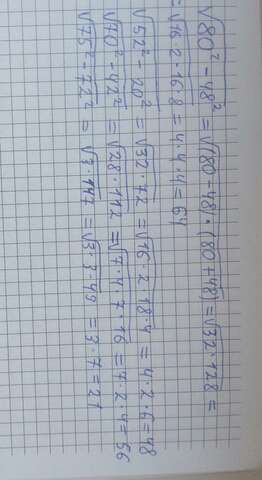 √80² - 48² = √(80-48)·(80+48) = √32·128 =
= √16·2·16·8 = 4·4·4 = 64
√52² - 20² = √32·72 = √16·2·18·4 = 4·2·6 = 48
√70² - 42² = √28·112 = √7·4·7·16 = 7·2·4 = 56
√75² - 72² = √3·147 = √3·3·49 = 3·7 = 21